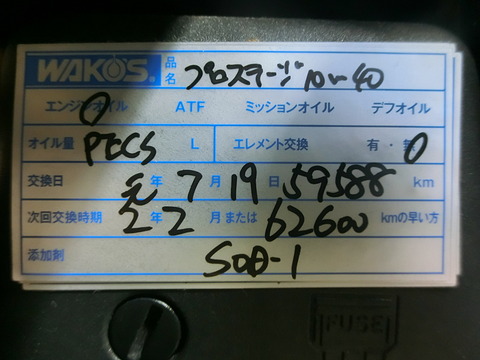 WAKO'S. 品名 プロステージ 10w40
エンジンオイル ATF ミッションオイル デフオイル
オイル量 PECS L エレメント交換 有・無
交換日 元年 7月 19日 59588 km
次回交換時期 2年 2月または 62600 kmの早い方
添加剤 SOD-1
FUSE